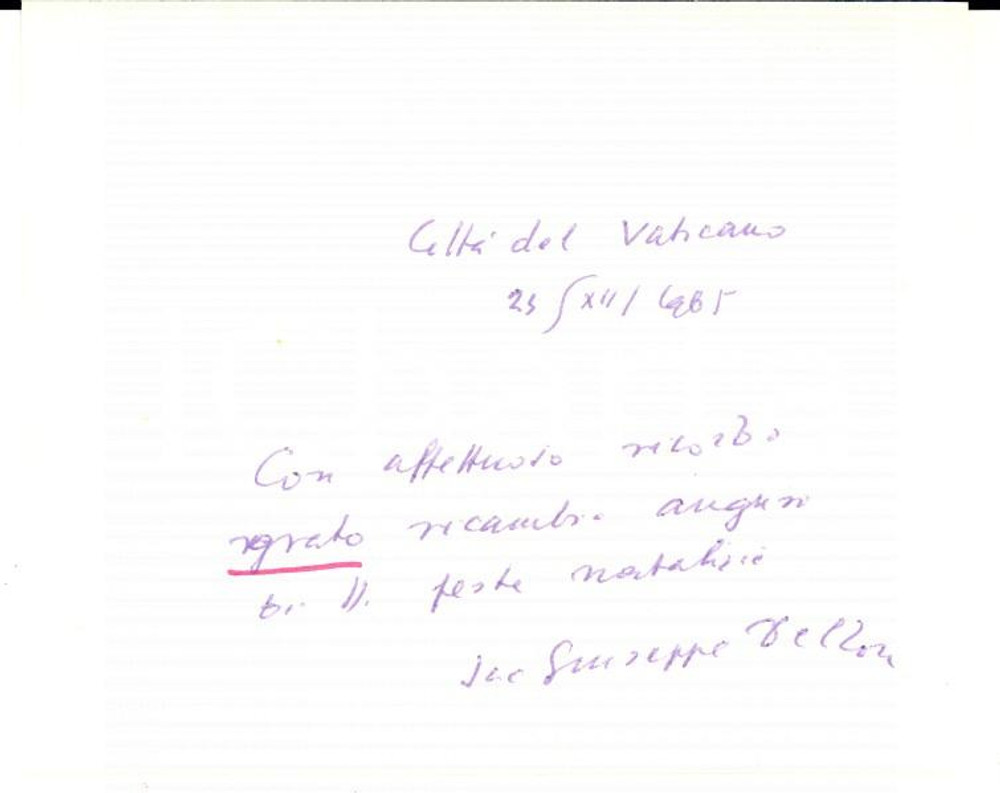 Città del Vaticano
23/XII/1985
Con affettuoso ricordo
grato ricambio auguri
di SS. feste natalizie
Sac Giuseppe